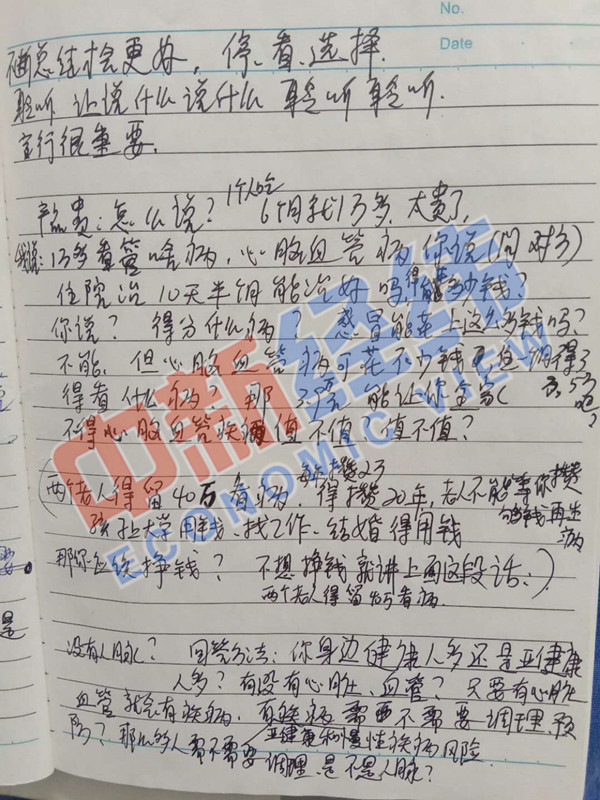 No.
Date
总结会更好，停、看、选择.
聆听 让说什么说什么 聆听 聆听.
言行很重要.
1个人吃
产品贵：怎么说？ 6个月就1万多，太贵了,
我说：1万多看管啥病，心脑血管病你说(问对方)
住院治10天半月能治好吗 得多少钱？
你说？ 得分什么病？ 感冒能花上这么多钱吗？
不能，但心脑血管病可花不少钱 得了
得看什么病？那 能让你全家
不得心脑血管疾病值不值？值不值？
每年攒2万
(两个老人得留40万看病，得攒20年，老人不能等你攒
够钱再生病
孩子上大学用钱、找工作、结婚得用钱
那你应该挣钱？ 不想挣钱就讲上面这段话：)
两个老人得留 看病
没有人脉？ 回答方法：你身边健康人多还是亚健康
人多？有没有心脏、血管？只要有心脏
血管就会有疾病，有疾病需要不需要调理、预
防？那么多人需不需要调理，是不是人脉？
亚健康和慢性疾病风险
中新经纬
ECONOMIC VIEW